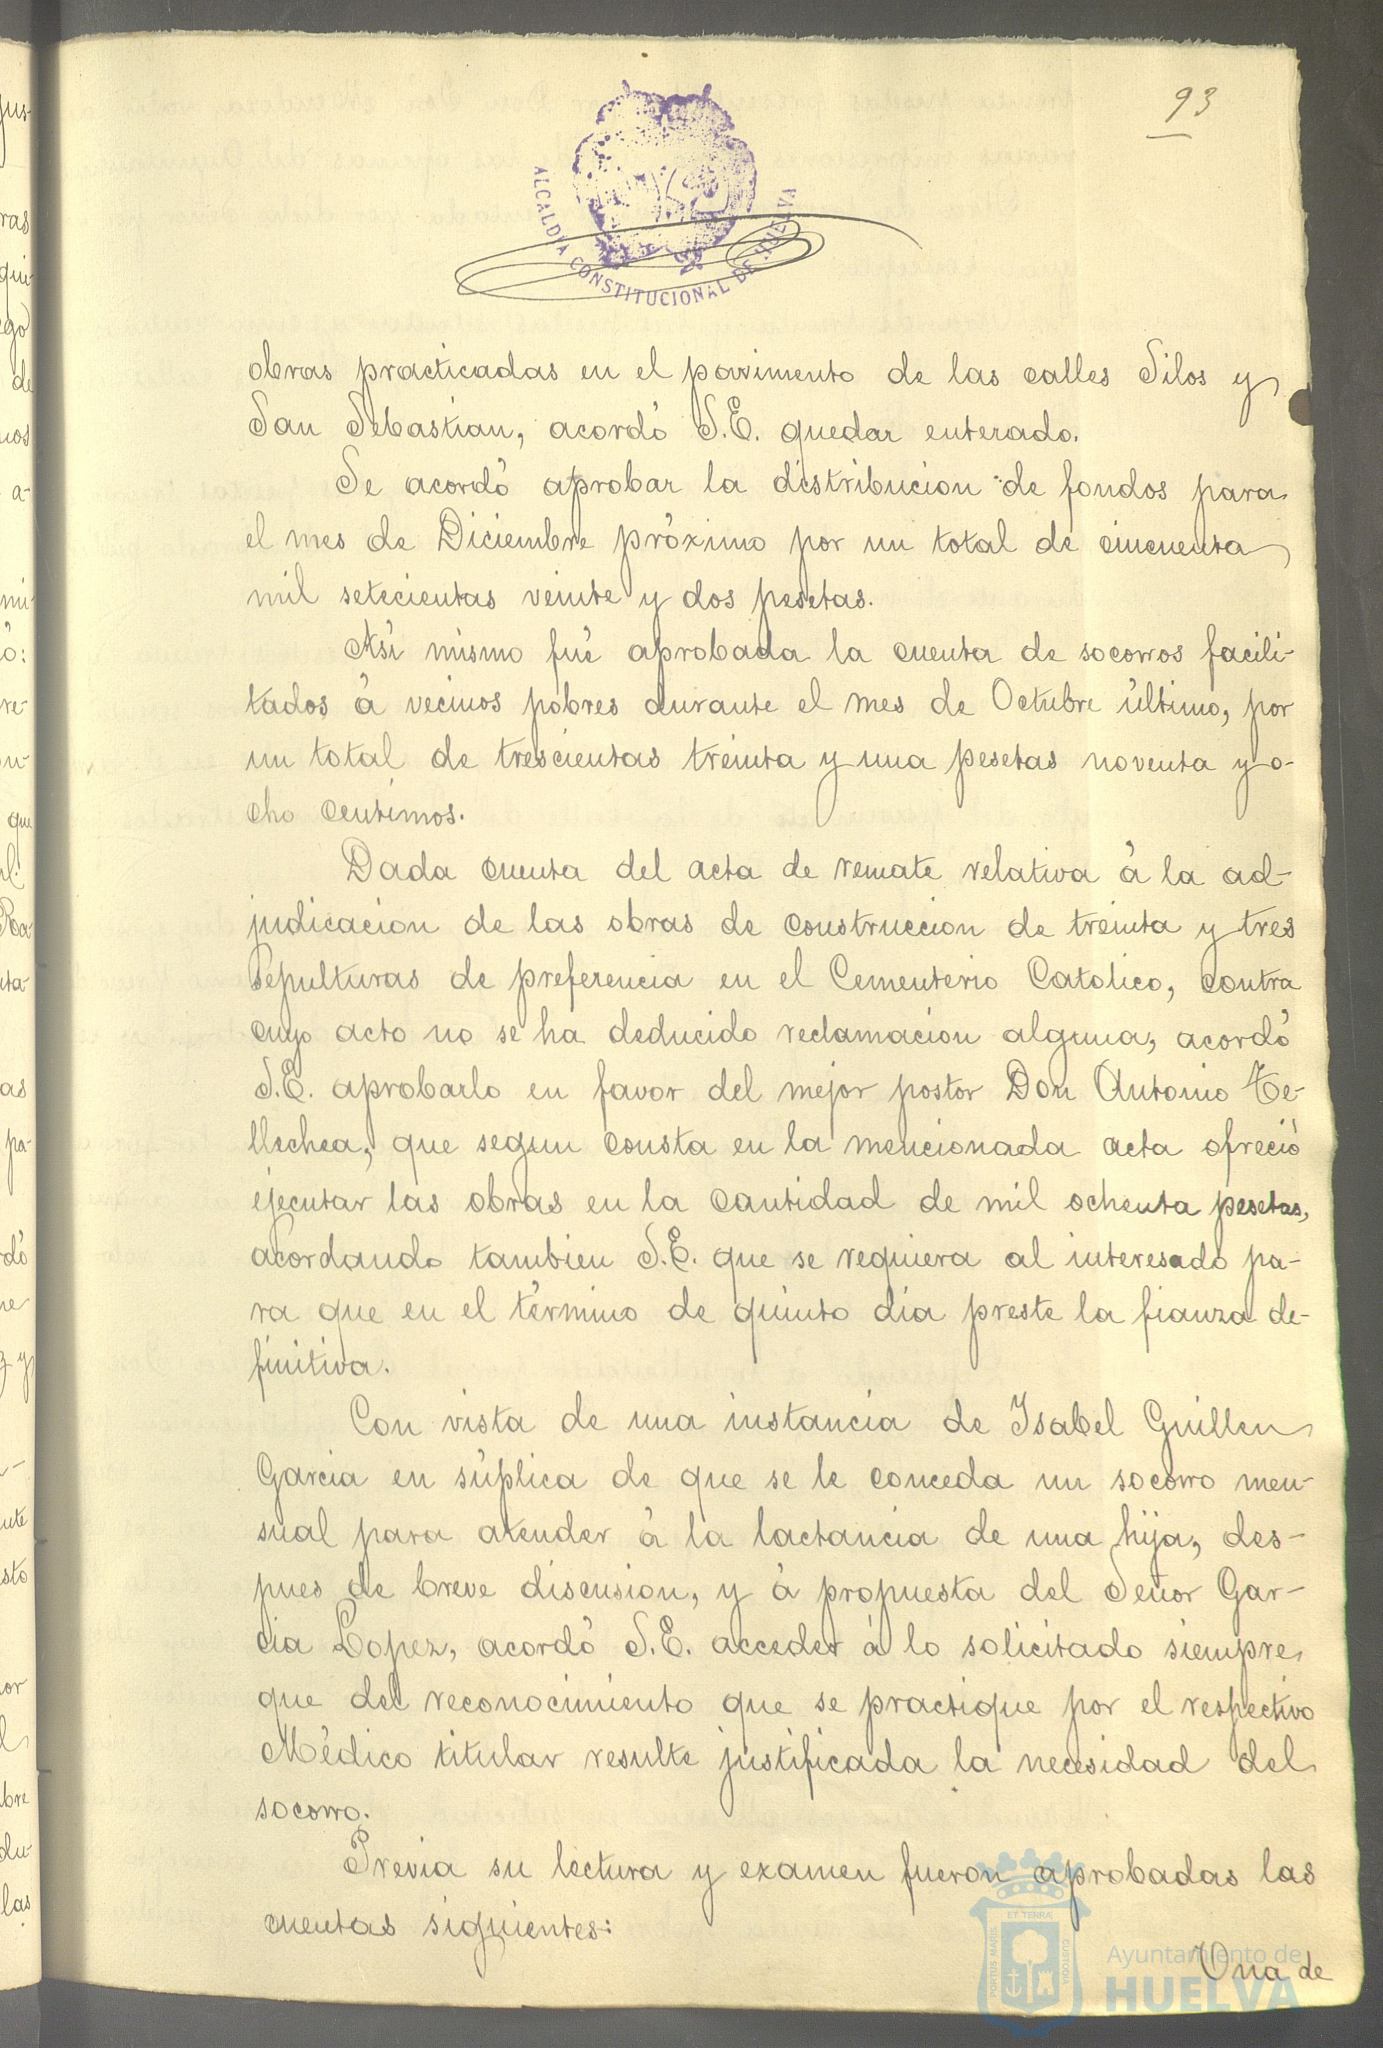 93
ALCALDIA CONSTITUCIONAL DE HUELVA
obras practicadas en el pavimento de las calles Silos y
San Sebastian, acordó S.E. quedar enterado.
Se acordó aprobar la distribucion de fondos para
el mes de Diciembre próximo por un total de cincuenta
mil setecientas veinte y dos pesetas.
Así mismo fué aprobada la cuenta de socorros facili-
tados á vecinos pobres durante el mes de Octubre último, por
un total de trescientas treinta y una pesetas noventa y o-
cho centimos.
Dada cuenta del acta de remate relativa á la ad-
judicacion de las obras de construccion de treinta y tres
sepulturas de preferencia en el Cementerio Catolico, contra
cuyo acto no se ha deducido reclamacion alguna, acordó
S.E. aprobarlo en favor del mejor postor Don Antonio Te-
llechea, que segun consta en la mencionada acta ofreció
ejecutar las obras en la cantidad de mil ochenta pesetas,
acordando tambien S.E. que se requiera al interesado pa-
ra que en el término de quinto dia preste la fianza de-
finitiva.
Con vista de una instancia de Isabel Guillen
Garcia en súplica de que se le conceda un socorro men-
sual para atender á la lactancia de una hija, des-
pues de breve discusion, y á propuesta del Señor Gar-
cia Lopez, acordó S.E. acceder á lo solicitado siempre
que del reconocimiento que se practique por el respectivo
Médico titular resulte justificada la necesidad del
socorro.
Previa su lectura y examen fueron aprobadas las
cuentas siguientes:
Una de
PORTUS MARIS ET TERRÆ CUSTODIA
Ayuntamiento de
HUELVA